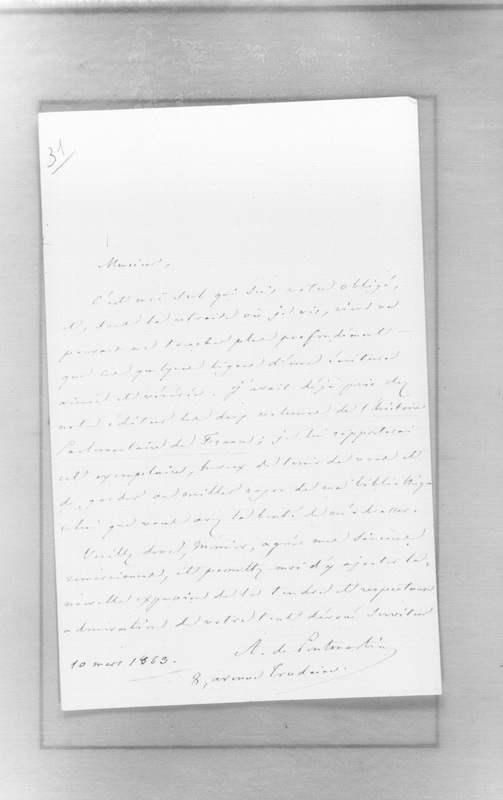 31
Monsieur,
C'est moi seul qui suis votre obligé,
et, dans la retraite où je vis, rien ne
pouvait me toucher plus profondément
que ces quelques lignes d'une écriture
aimée et vénérée. J'avais déjà pris chez
votre éditeur les deux volumes de l'Histoire
Parlementaire de France; je lui rapporterai
cet exemplaire, heureux de tenir de vous et
de garder au meilleur rayon de ma bibliothèque
celui que vous avez la bonté de m'adresser.
Veuillez donc, Monsieur, agréer mes sincères
remerciements, et permettez moi d'y ajouter la
nouvelle expression de la tendre et respectueuse
admiration de votre tout dévoué serviteur
A. de Pontmartin
10 mars 1863.
8, avenue Trudaine.